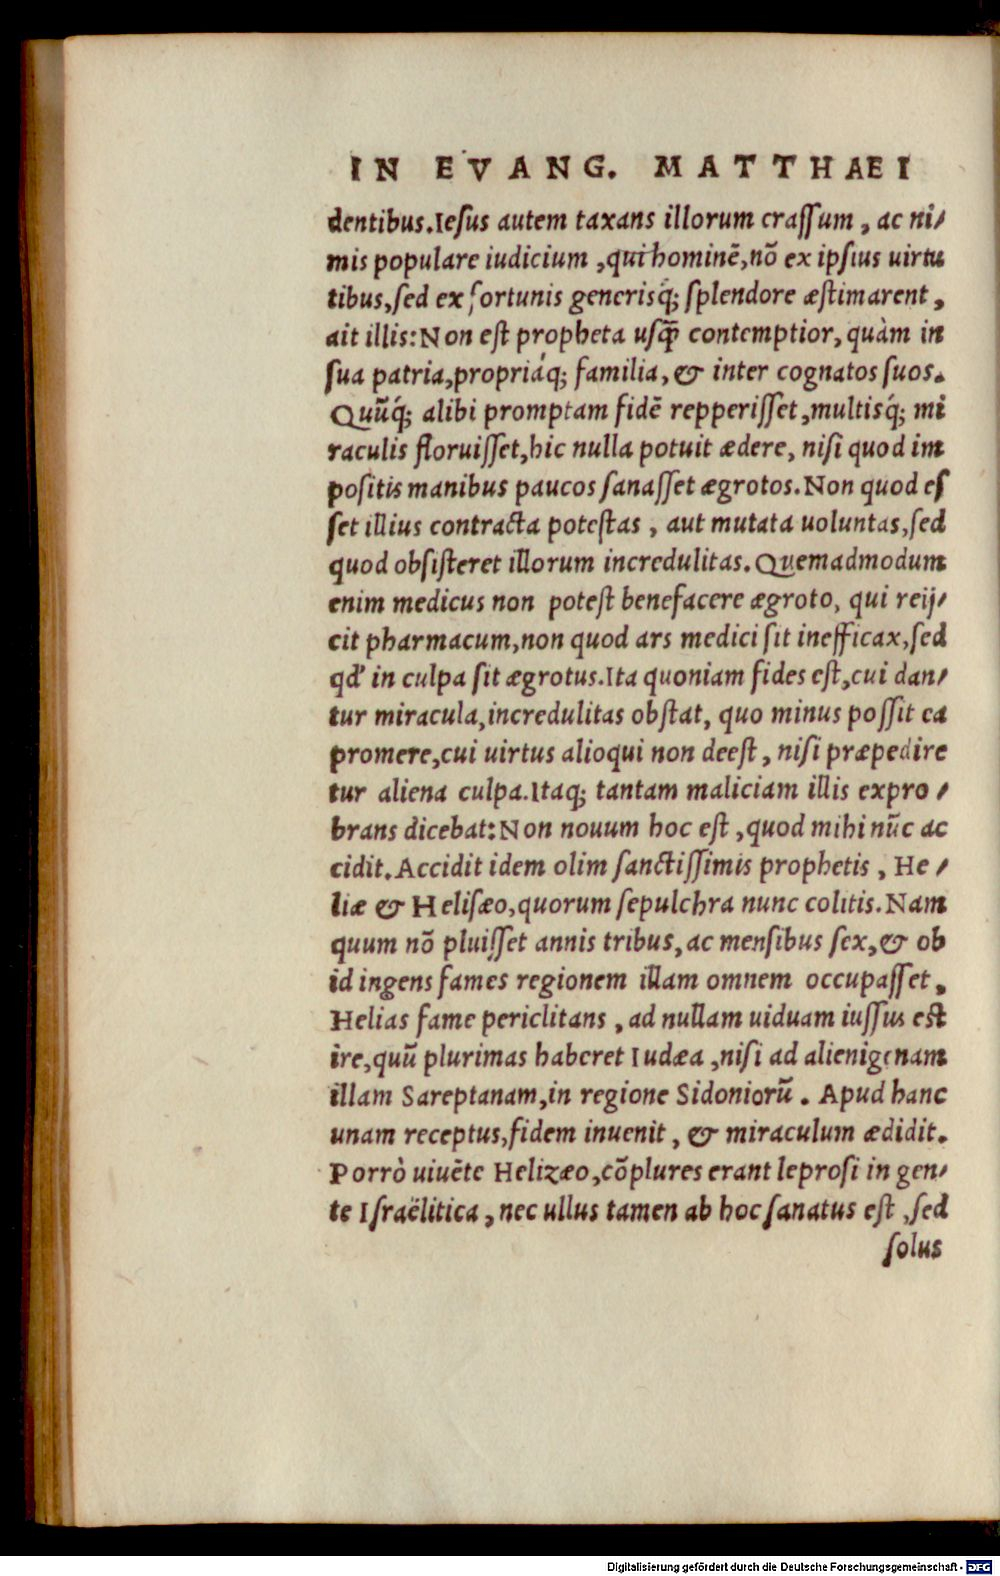 IN EVANG. MATTHAEI
dentibus.Iesus autem taxans illorum crassum, ac ni/
mis populare iudicium, qui hominē, nō ex ipsius uirtu
tibus, sed ex fortunis generisq́; splendore æstimarent,
ait illis: Non est propheta usq̃ contemptior, quàm in
sua patria, propriáq; familia, & inter cognatos suos.
Quũq́; alibi promptam fidē repperisset, multisq́; mi
raculis floruisset, hic nulla potuit ædere, nisi quod im
positis manibus paucos sanasset ægrotos. Non quod es
set illius contracta potestas, aut mutata uoluntas, sed
quod obsisteret illorum incredulitas. Quemadmodum
enim medicus non potest benefacere ægroto, qui reij/
cit pharmacum, non quod ars medici sit inefficax, sed
qd' in culpa sit ægrotus. Ita quoniam fides est, cui dan/
tur miracula, incredulitas obstat, quo minus possit ea
promere, cui uirtus alioqui non deest, nisi præpedire
tur aliena culpa. Itaq; tantam maliciam illis expro/
brans dicebat: Non nouum hoc est, quod mihi nũc ac
cidit. Accidit idem olim sanctissimis prophetis, He/
liæ & Helisæo, quorum sepulchra nunc colitis. Nam
quum nō pluisset annis tribus, ac mensibus sex, & ob
id ingens fames regionem illam omnem occupasset,
Helias fame periclitans, ad nullam uiduam iussus est
ire, quũ plurimas haberet Iudæa, nisi ad alienigenam
illam Sareptanam, in regione Sidoniorũ. Apud hanc
unam receptus, fidem inuenit, & miraculum ædidit.
Porrò uiuēte Helizæo, cōplures erant leprosi in gen/
te Israëlitica, nec ullus tamen ab hoc sanatus est, sed
solus
Digitalisierung gefördert durch die Deutsche Forschungsgemeinschaft - DFG